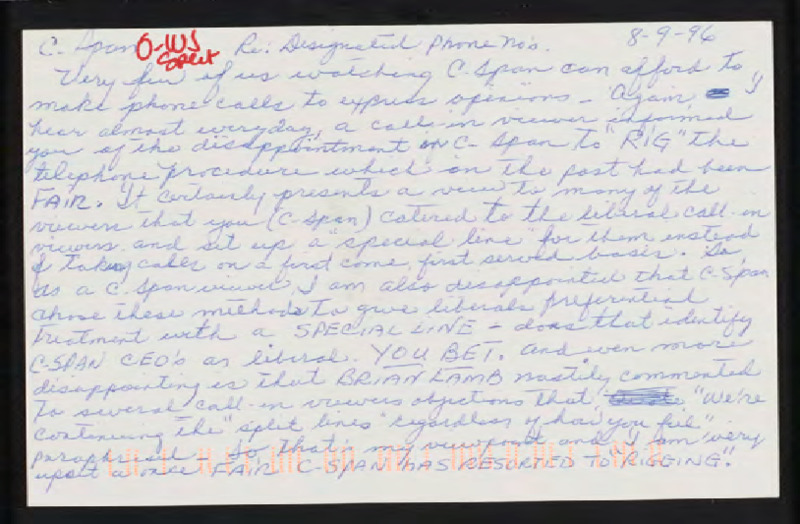 C-Span O-WS Split Re: Designated Phone No's. 8-9-96
Very few of us watching C-Span can afford to
make phone calls to express opinions - Again, I
hear almost everyday, a call-in viewer informed
you of the disappointment in C-Span to "RIG" the
telephone procedure which in the past had been
FAIR. It certainly presents a view to many of the
viewers that you (C-Span) catered to the liberal call-in
viewers and set up a "special line" for them instead
of taking calls on a first come, first served basis. So,
as a C-Span viewer I am also disappointed that C-Span
chose these methods to give liberals preferential
treatment with a SPECIAL LINE - does that identify
C-SPAN CEO's as liberal. YOU BET. And even more
disappointing is that BRIAN LAMB nastily commented
to several call-in viewers objections that "We're
continuing the "split lines" regardless of how you feel"
paraphrased - So that's my viewpoint and I am very
upset a once FAIR C-SPAN HAS RESORTED TO "RIGGING".